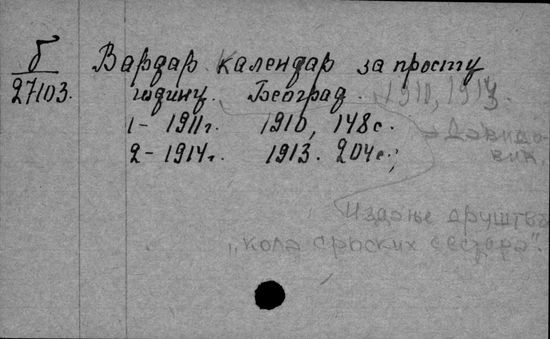 б
27103.
Вардар календар за просту
годину. Београд. 1910, 1913.
1 - 1911г. 1910, 148с.
2 - 1914г. 1913. 204с.;
Издање друштва
„Кола српских сестара".